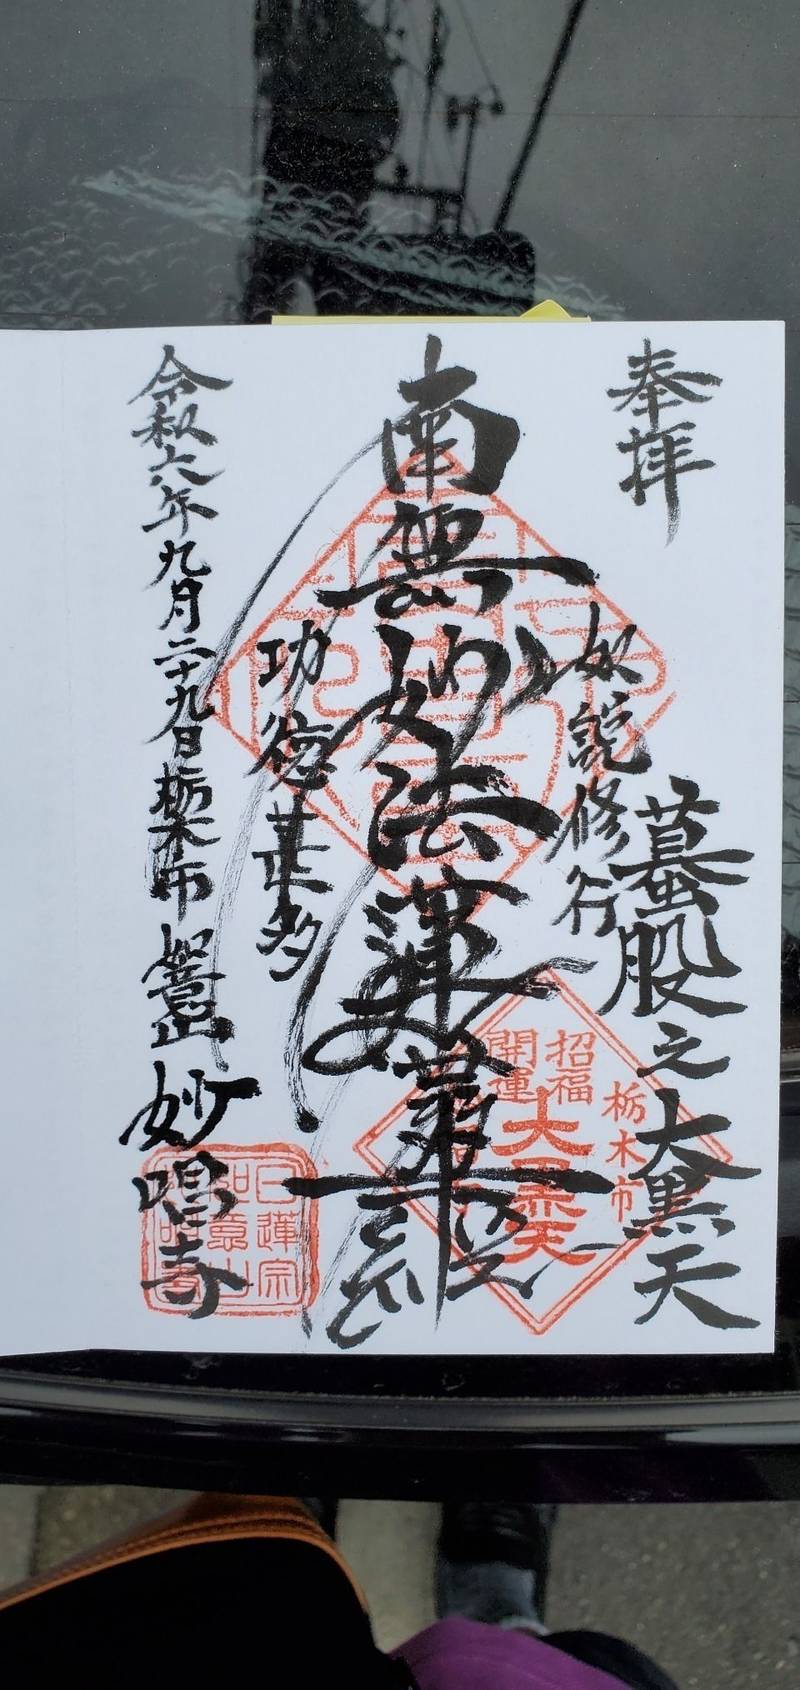 奉拝
蟇股之大黒天
如説修行
南無妙法蓮華経
功徳甚多
令和六年九月二十九日栃木市如意山
妙唱寺
栃木市
招福
開運
大黒天
日蓮宗
如意山
妙唱寺